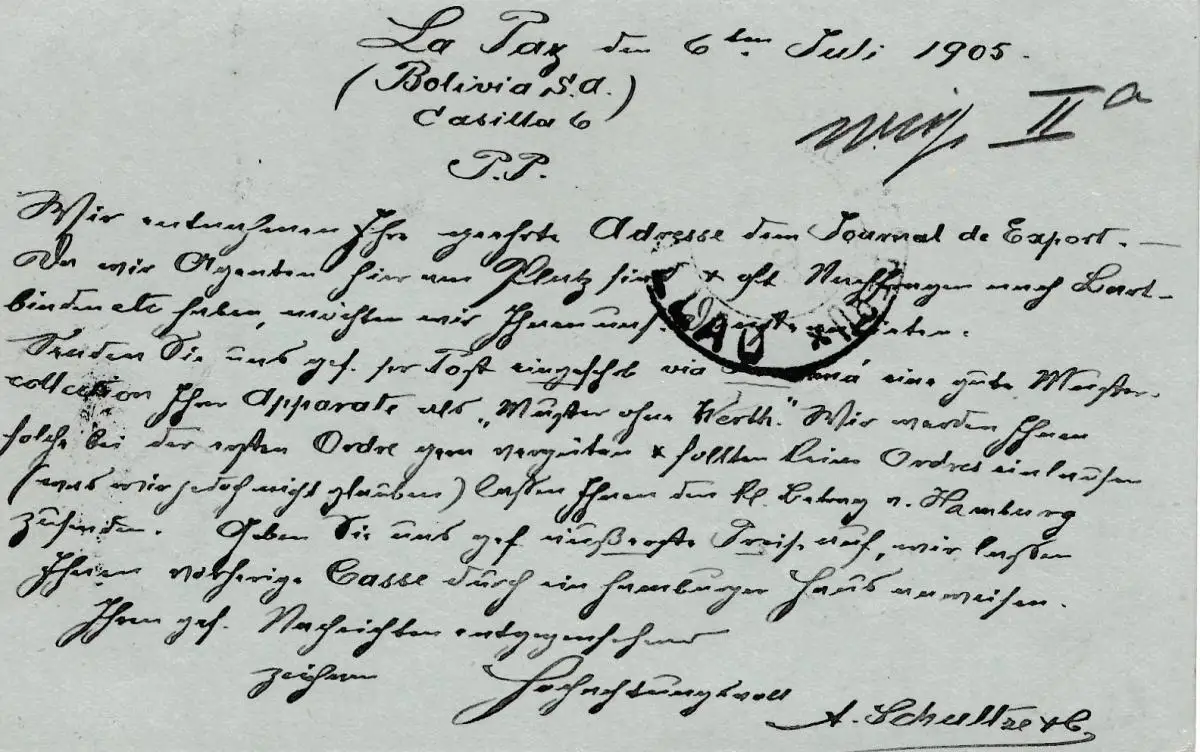 La Paz den 6ten Juli 1905.
(Bolivia S.A.)
Casilla 6
II a
P.P.
Wir entnehmen Ihre geehrte Adresse dem Journal de Export. —
Da wir Agenten hier am Platz sind & oft Nachfragen nach Bart-
binden etc haben, möchten wir Ihnen uns.
Senden Sie uns gef. per Post eingeschb via eine gute Muster-
collection Ihrer Apparate als „Muster ohne Werth." Wir werden Ihnen
solche bei der ersten Ordre gern vergüten & sollten keine Ordres einlaufen
(was wir jedoch nicht glauben) lassen Ihnen den kl. Betrag v. Hamburg
zusenden. Geben Sie uns gef. äußerste Preise auf, wir lassen
Ihnen vorherige Casse durch ein hamburger Haus anweisen.
Ihren gef. Nachrichten entgegensehend
zeichnen Hochachtungsvoll
A. Schultze & C.
LAU